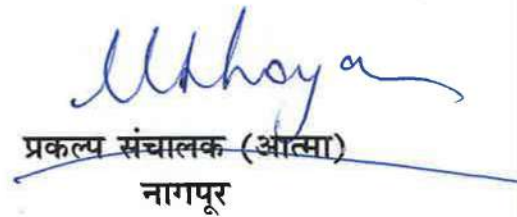 प्रकल्प संचालक (आत्मा)
नागपूर